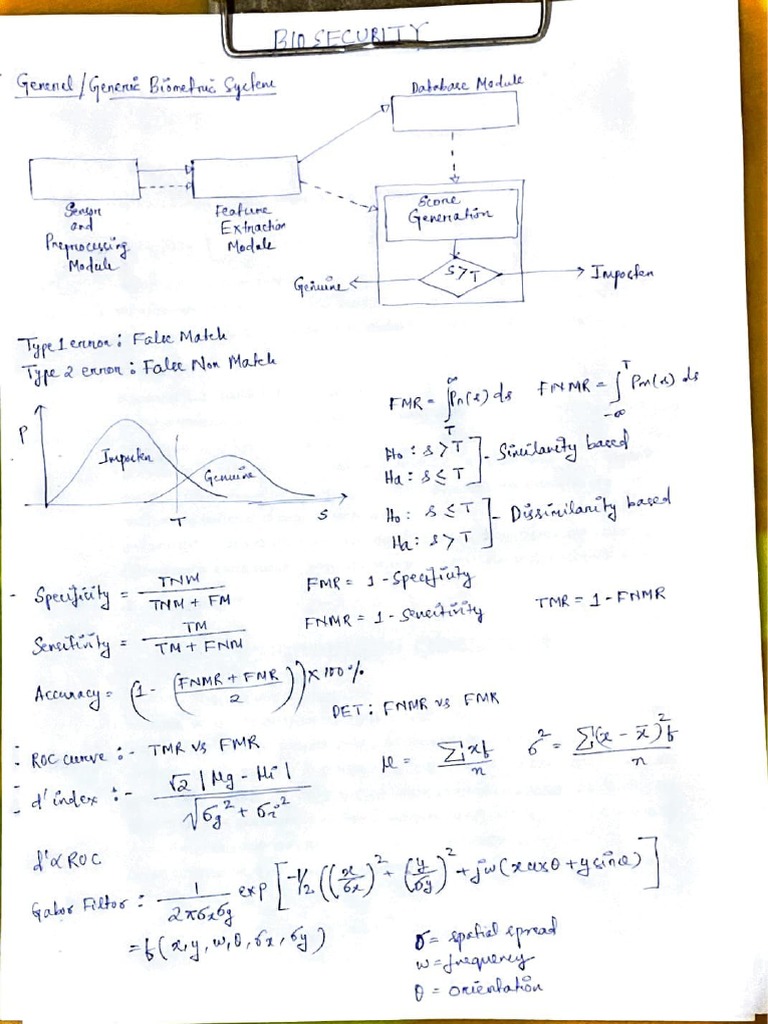 BIOSECURITY
General/Generic Biometric System
Database Module
Sensor and Preprocessing Module
Feature Extraction Module
Score Generation
S>T
Genuine
Imposter
Type 1 error : False Match
Type 2 error : False Non Match
FMR = ∫_T^∞ Pn(s) ds    FNMR = ∫_{-∞}^T Pm(s) ds
P
Imposter
Genuine
T
S
Ho : s > T
Ha : s ≤ T ] - Similarity based
Ho : s ≤ T
Ha : s > T ] - Dissimilarity based
- Specificity = TNM / (TNM + FM)    FMR = 1 - Specificity
Sensitivity = TM / (TM + FNM)    FNMR = 1 - Sensitivity    TMR = 1 - FNMR
Accuracy = (1 - ((FNMR + FMR) / 2)) × 100%
DET : FNMR vs FMR
ROC curve :- TMR vs FMR    μ = Σxf / n    σ² = Σ(x - x̄)²f / n
d' index :- √2 |μg - μi| / √(σg² + σi²)
d' ∝ ROC
Gabor Filter : 1 / (2πσxσy) exp [ -1/2 ((x/σx)² + (y/σy)² + jω(x cosθ + y sinθ) ]
= f (x, y, ω, θ, σx, σy)
σ = spatial spread
ω = frequency
θ = orientation